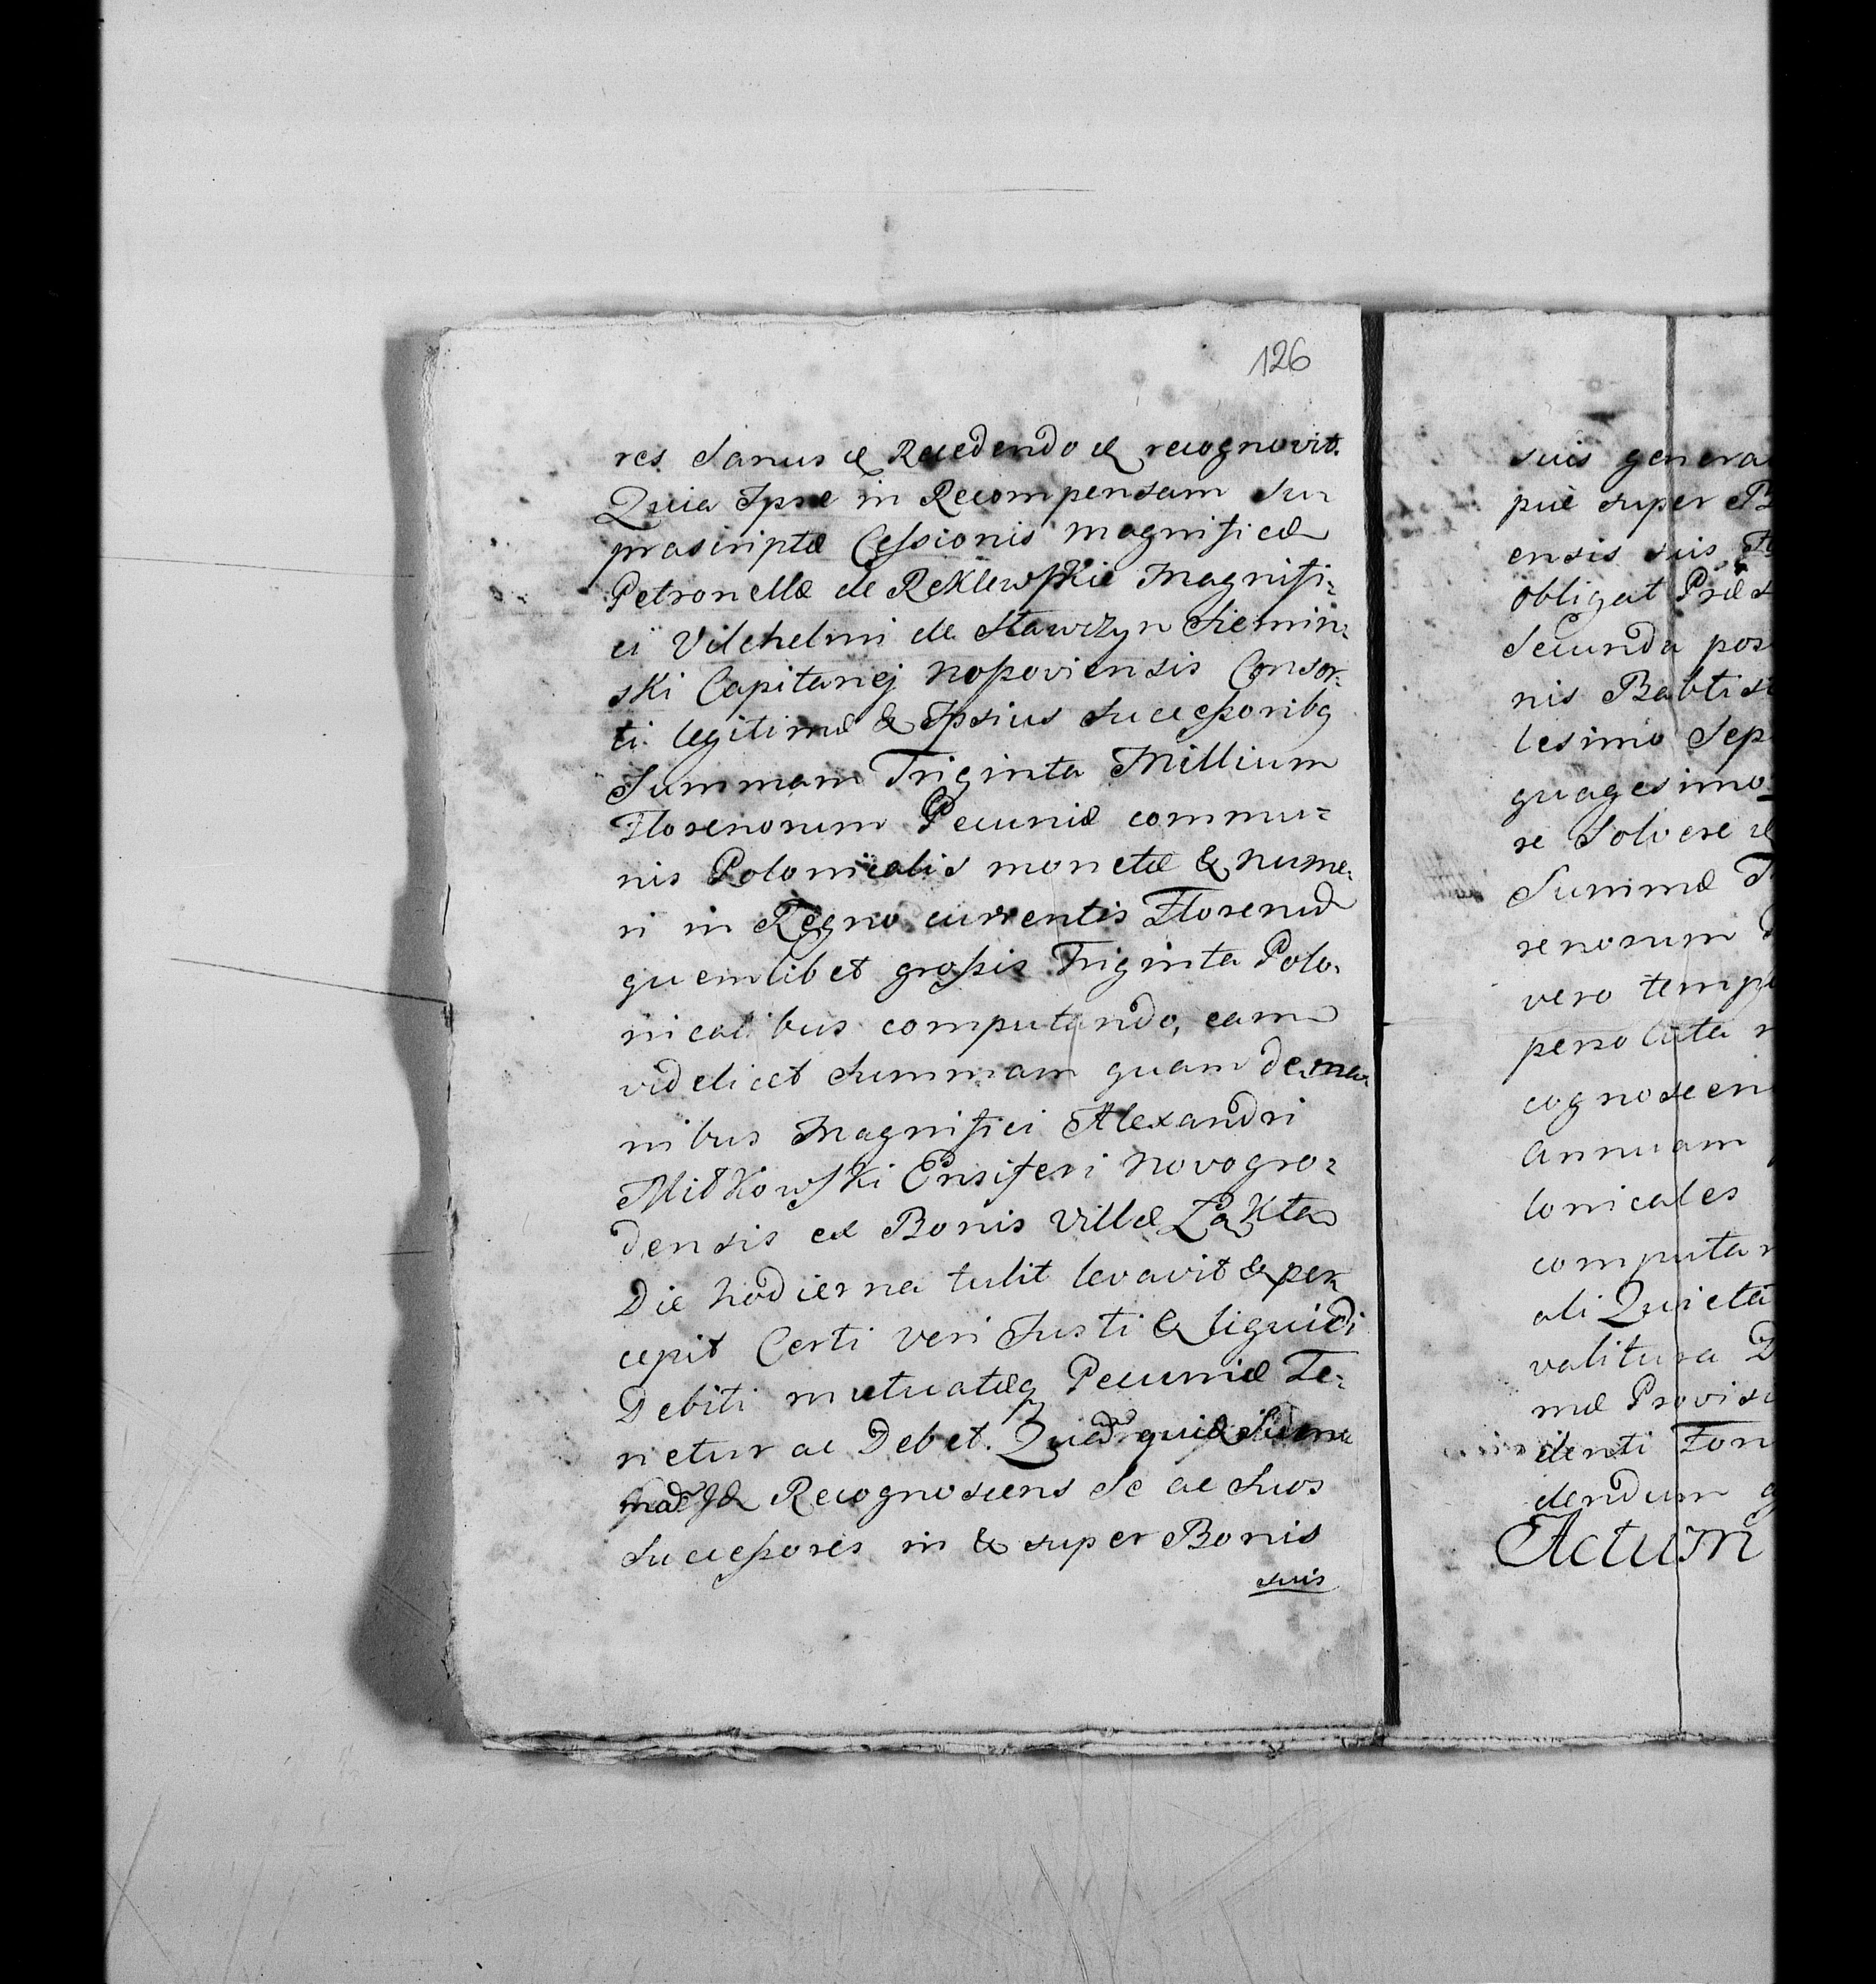 126
res Sanus & Recedendo & recognovit.
Quia Ipse in Recompensam Su=
prascriptæ Cessionis Magnificæ
Petronellæ de Reklewskie Magnifi=
ci Vilchelmi de Stawczyn Siemin=
ski Capitanej Nossoviensis Consor=
ti legitimæ & Ipsius Successoribq
Summam Triginta Millium
Florenorum Pecuniæ commu=
nis Polonicalis monetæ & nume=
ri in Regno currentis Florenũ
quemlibet grossis Triginta Polo=
nicalibus computando, eam
videlicet Summam quam de ma=
nibus Magnifici Alexandri
Miłkowski Ensiferi Novogro=
densis ex Bonis Villæ Łąkta
Die hodierna tulit levavit & per
cepit Certi veri Justi & liquidi
Debiti mutuatæq Pecuniæ Te=
netur ac Debet.
Recognoscens Se ac Suos
Successores in & super Bonis
suis
suis genera
pue super B
ensis suis
obligat Præs
Secunda pos
nis Babtis
lesimo Sep
quagesimo
re Solvere &
Summæ T
renorum
vero temp
persoluta
cognoscen
Annuam
lonicales
computan
ali Quieta
valitura D
mæ Provis
identi Fon
dendum
Actum